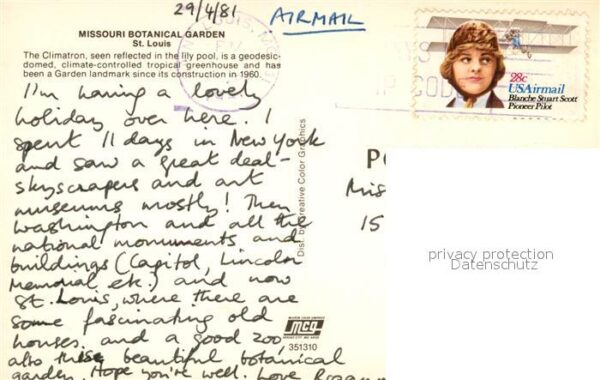 29/4/81
AIRMAIL
MISSOURI BOTANICAL GARDEN
St. Louis
The Climatron, seen reflected in the lily pool, is a geodesic-
domed, climate-controlled tropical greenhouse and has
been a Garden landmark since its construction in 1960.
I'm having a lovely
holiday over here. I
spent 11 days in New York
and saw a great deal -
skyscrapers and art
museums mostly! Then
Washington and all the
national monuments and
buildings (Capitol, Lincoln
Memorial etc.) and now
St. Louis, where there are
some fascinating old
houses and a good zoo,
also this beautiful botanical
garden. Hope you're well. Love
Dist. by Creative Color Graphics
mcg
351310
28c
USAirmail
Blanche Stuart Scott
Pioneer Pilot
P
Mis
15
privacy protection
Datenschutz